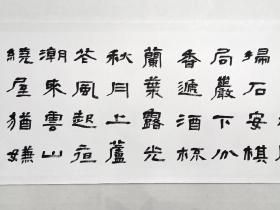 掃石安棋
局巖下分
香遞酒杯
蘭葉露光
秋月上蘆
花風起夜
潮來雲山
繞屋猶嫌